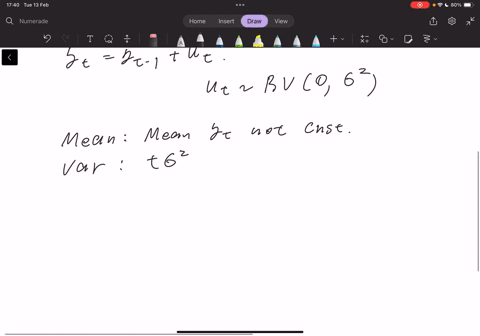 17:40 Tue 13 Feb
80%
Numerade
Home Insert Draw View
y_t = y_{t-1} + u_t.
u_t ~ BV (0, б²)
Mean: Mean y_t not cnst.
Var: tб²